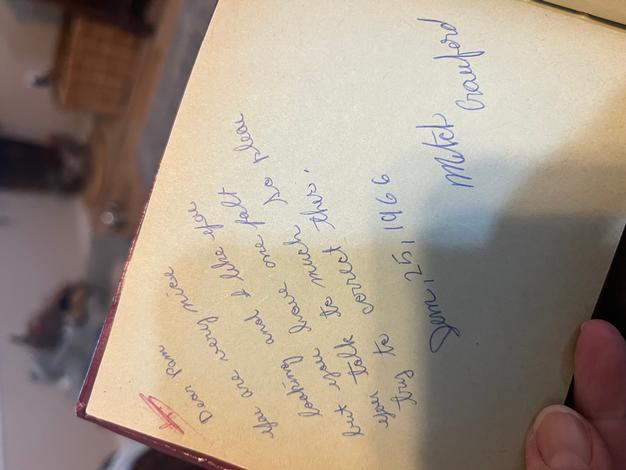 Dear Pam
You are very nice
looking and I like you
but you have one falt
you talk to much so please
try to correct this.
Jan, 25, 1966
Mitch
Crawford